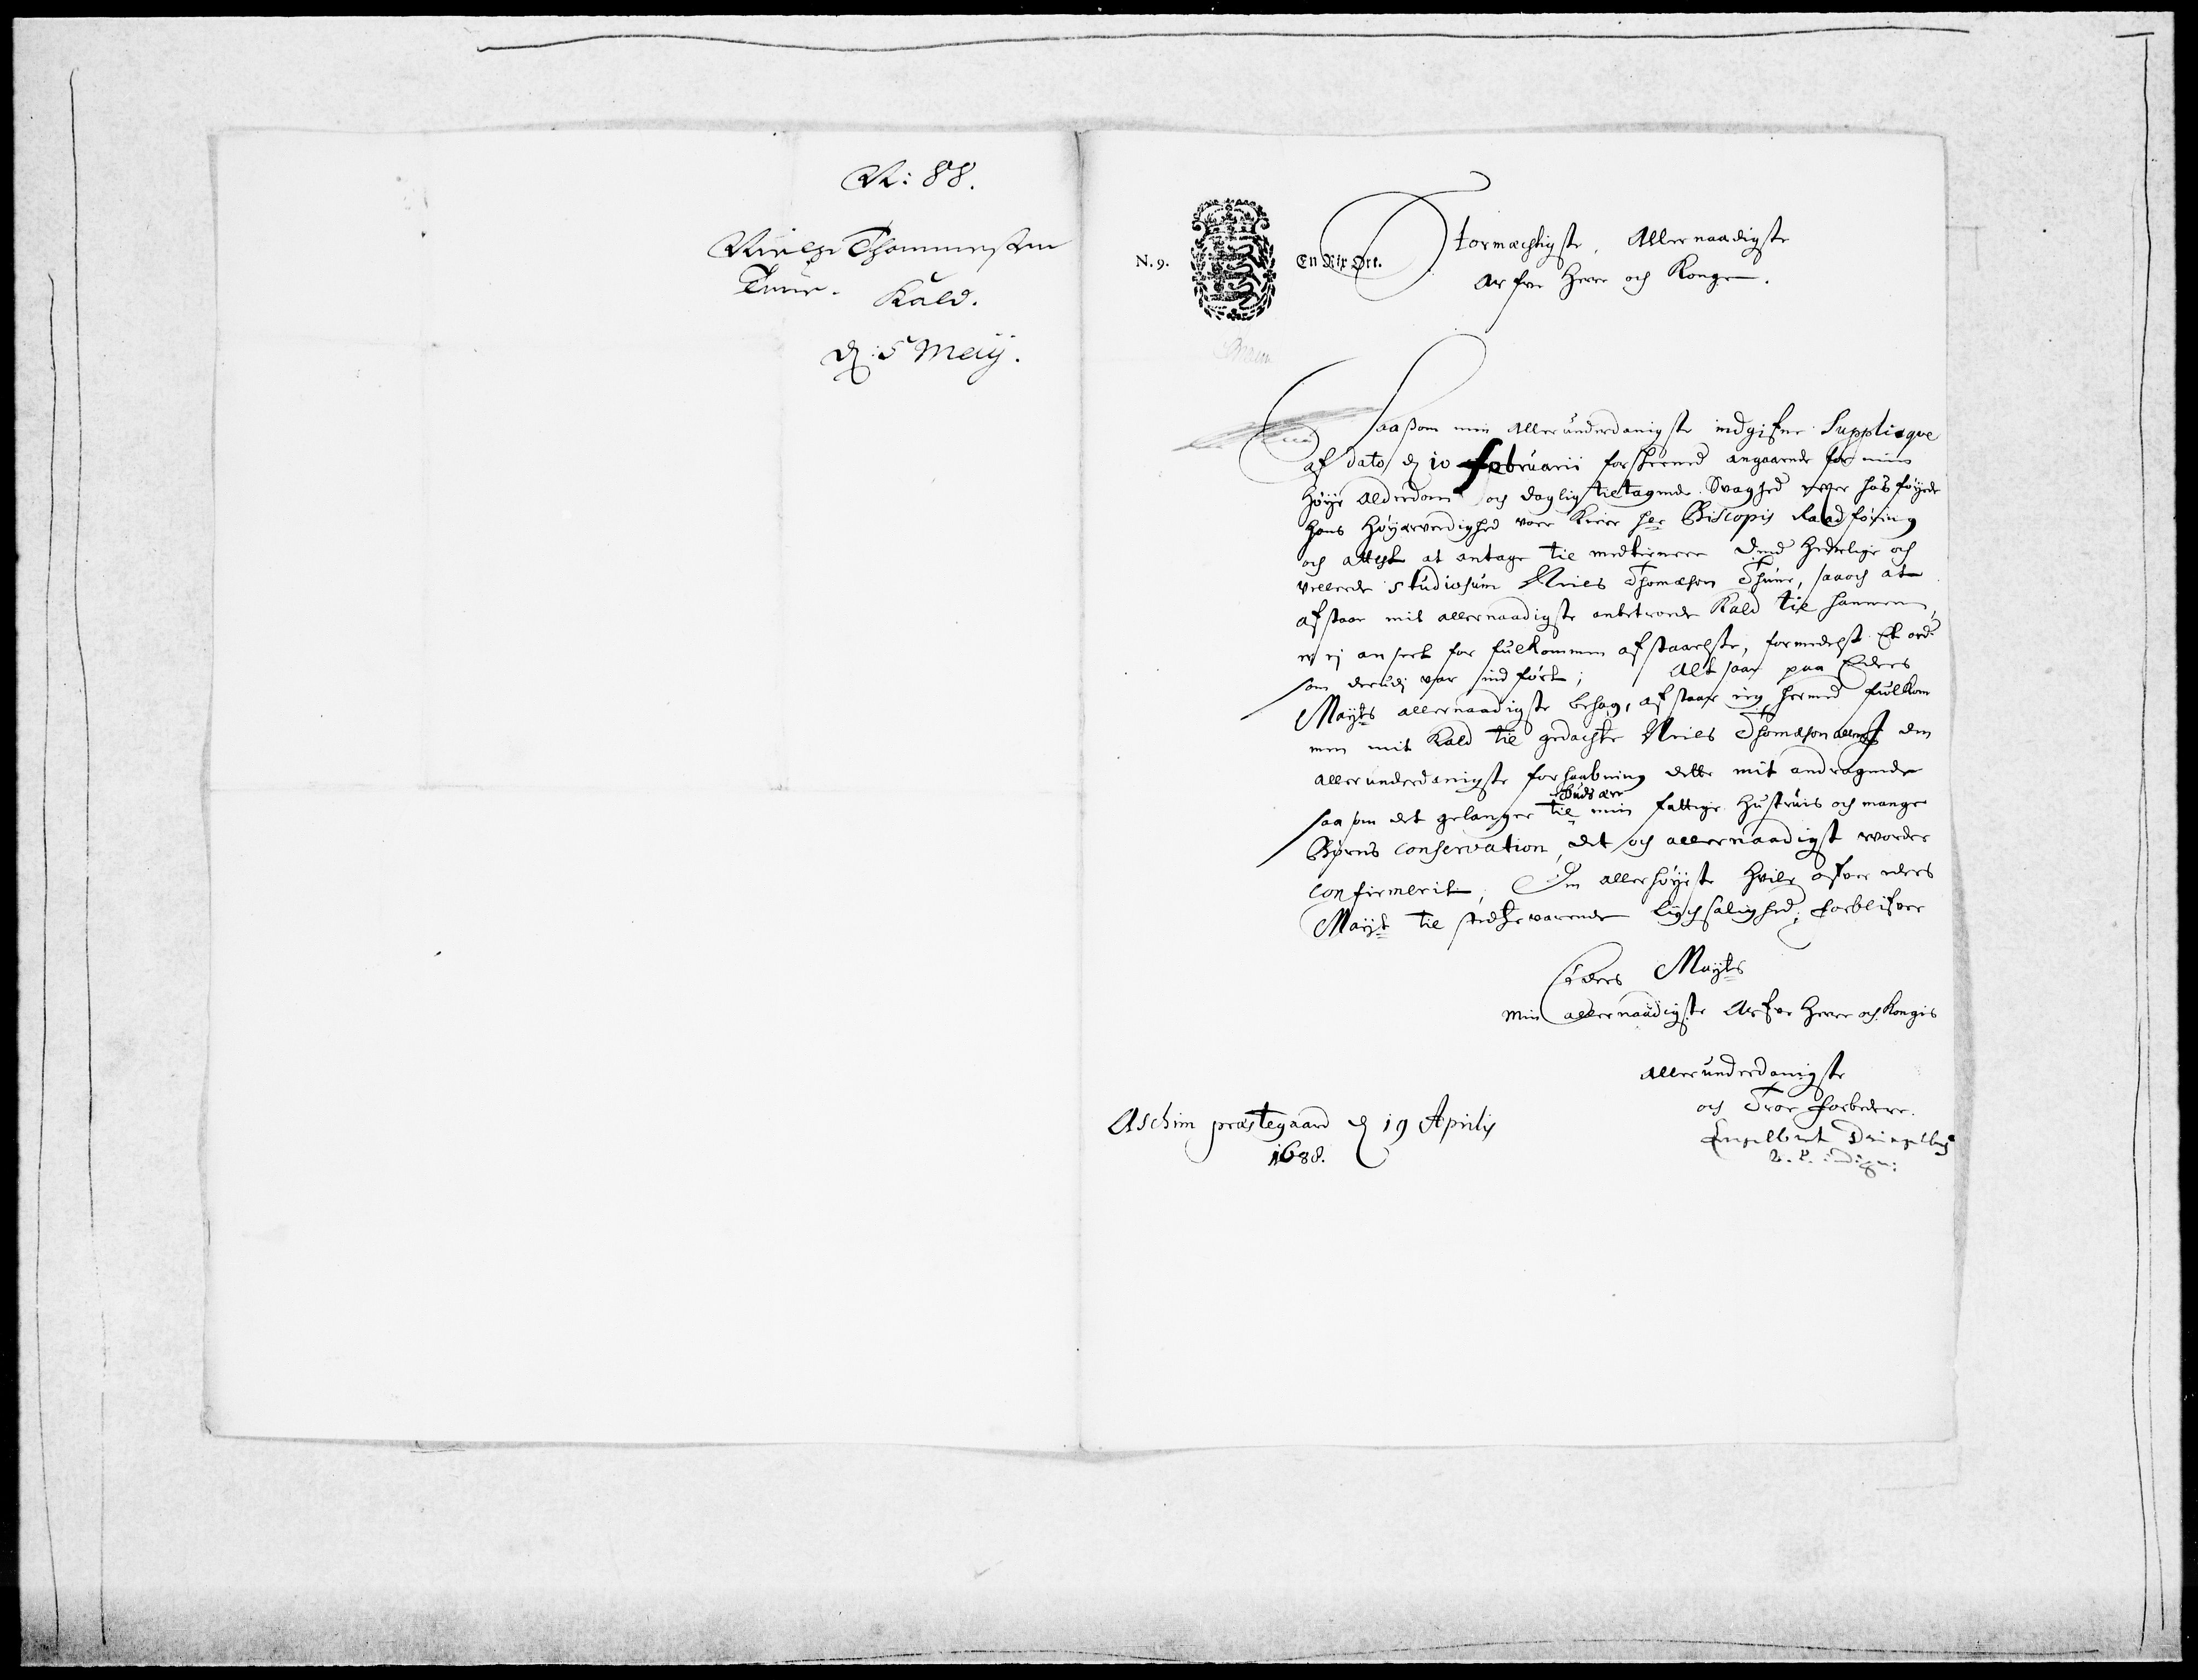 N: 88.
Nielss Thommessøn
Tune. Kald.
d: 5 Maij.
N. 9.
En Rix Ort.
Stormæchtigste, Allernaadigste
Arfve Herre och Konge.
Saasom min Allerunderdanigste indgifne Supplicqve
af dato d 10 februarii forskreved angaaende for min
høye Alderdom och daglig tiltagende Svaghed
hans Høyærverdighed voer Kiere her Biscopis Raadføring
och attest at antage til medtienere dend Hederlige och
vellerde studiosum Niels Thomæson Thune, saaoch at
afstaae mit allernaadigste anbetroede Kald til hannem,
er ej anseet for fulkommen afstaaelse, formedelst Et ord
som derudj var indført; Altsaa paa Eders
Mayts allernaadigste behag, afstaar jeg hermed fulkom
men mit Kald til gedachte Niels Thomæson den
allerunderdanigste forhaabning dette mit andragende
saasom det gelanger til min fattige Hustruis och mange
Børns conservation, det och allernaadigst worder
confirmerit, Den allerhøyeste Hvile ofver eders
Mayt til stedtzevarende lychsalighed; forblifver
Eders Mayts
Min allernaadigste Arfve Herre och Kongis
Allerunderdanigste
och Troe forbedere.
Engelbret
Aschim præstegaard d 19 Aprilis
1688.